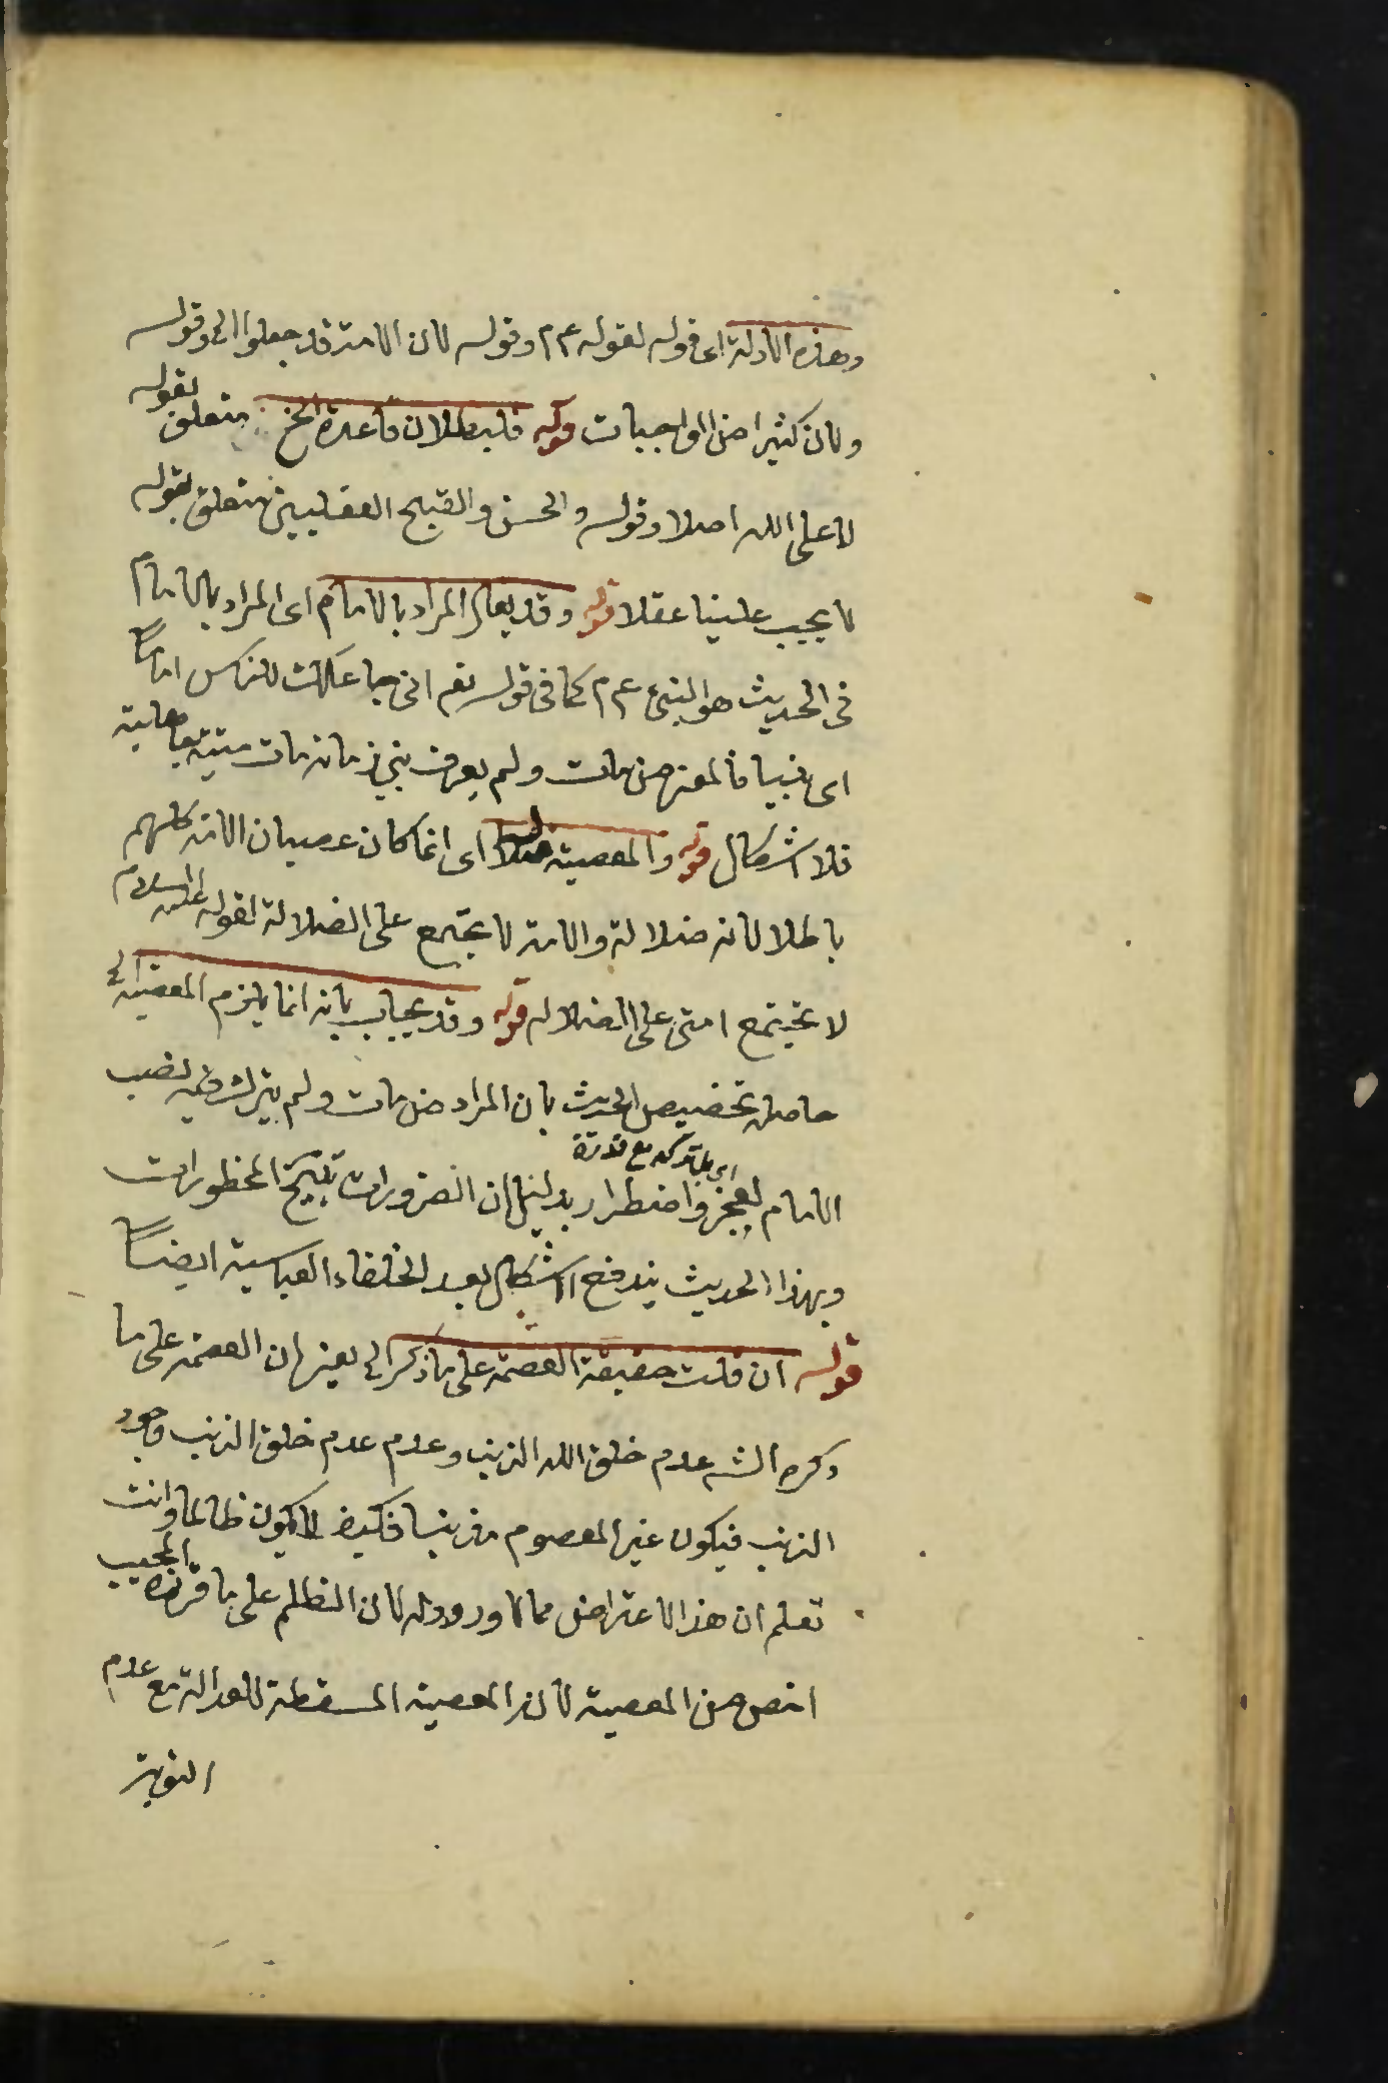 وهذه الادلة اى قوله لقوله عم م وقوله لان الامة قد جعلوا الخ وقوله
ولان كثيرا من الواجبات قوله فلبطلان قاعدة الخ متعلق بقوله
لا على الله اصلا وقوله والحسن والقبح العقليين متعلق بقوله
لا يجب علينا عقلا قوله وقد يقال المراد بالامام اى المراد بالامام
فى الحديث هو النبى عم م كما فى قوله تعم انى جاعلك للناس اماما
اى نبيا فالمعنى من مات ولم يعرف نبى زمانه مات ميتة جاهلية
فلا اشكال قوله والمعصية ضلالة اى انما كان عصيان الامة كلهم
باطلا لانه ضلالة والامة لا تجتمع على الضلالة لقوله عليه السلام
لا تجتمع امتى على الضلاله قوله وقد يجاب بانه انما يلزم المعصية الخ
حاصله تخصيص الحديث بان المراد من مات ولم يترك فيه نصب
اى بل تركه مع قدرة
الامام لعجز واضطرار بدليل ان الضرورات تبيح المحظورات
وبهذا الحديث يندفع الاشكال بعد الخلفاء العباسية ايضا
قوله ان قلت حقيقة العصمة على ما ذكر الخ يعنى ان العصمة على ما
ذكره الشه عدم خلق الله الذنب وعدم عدم خلق الذنب وجود
الذنب فيكون غير المعصوم مذنبا فكيف لا يكون ظالما وانت
تعلم ان هذا الاعتراض مما لا ورود له لان الظلم على ما قرره المجيب
اخص من المعصية لانه المعصية المسقطة للعدالة مع عدم
التوبة